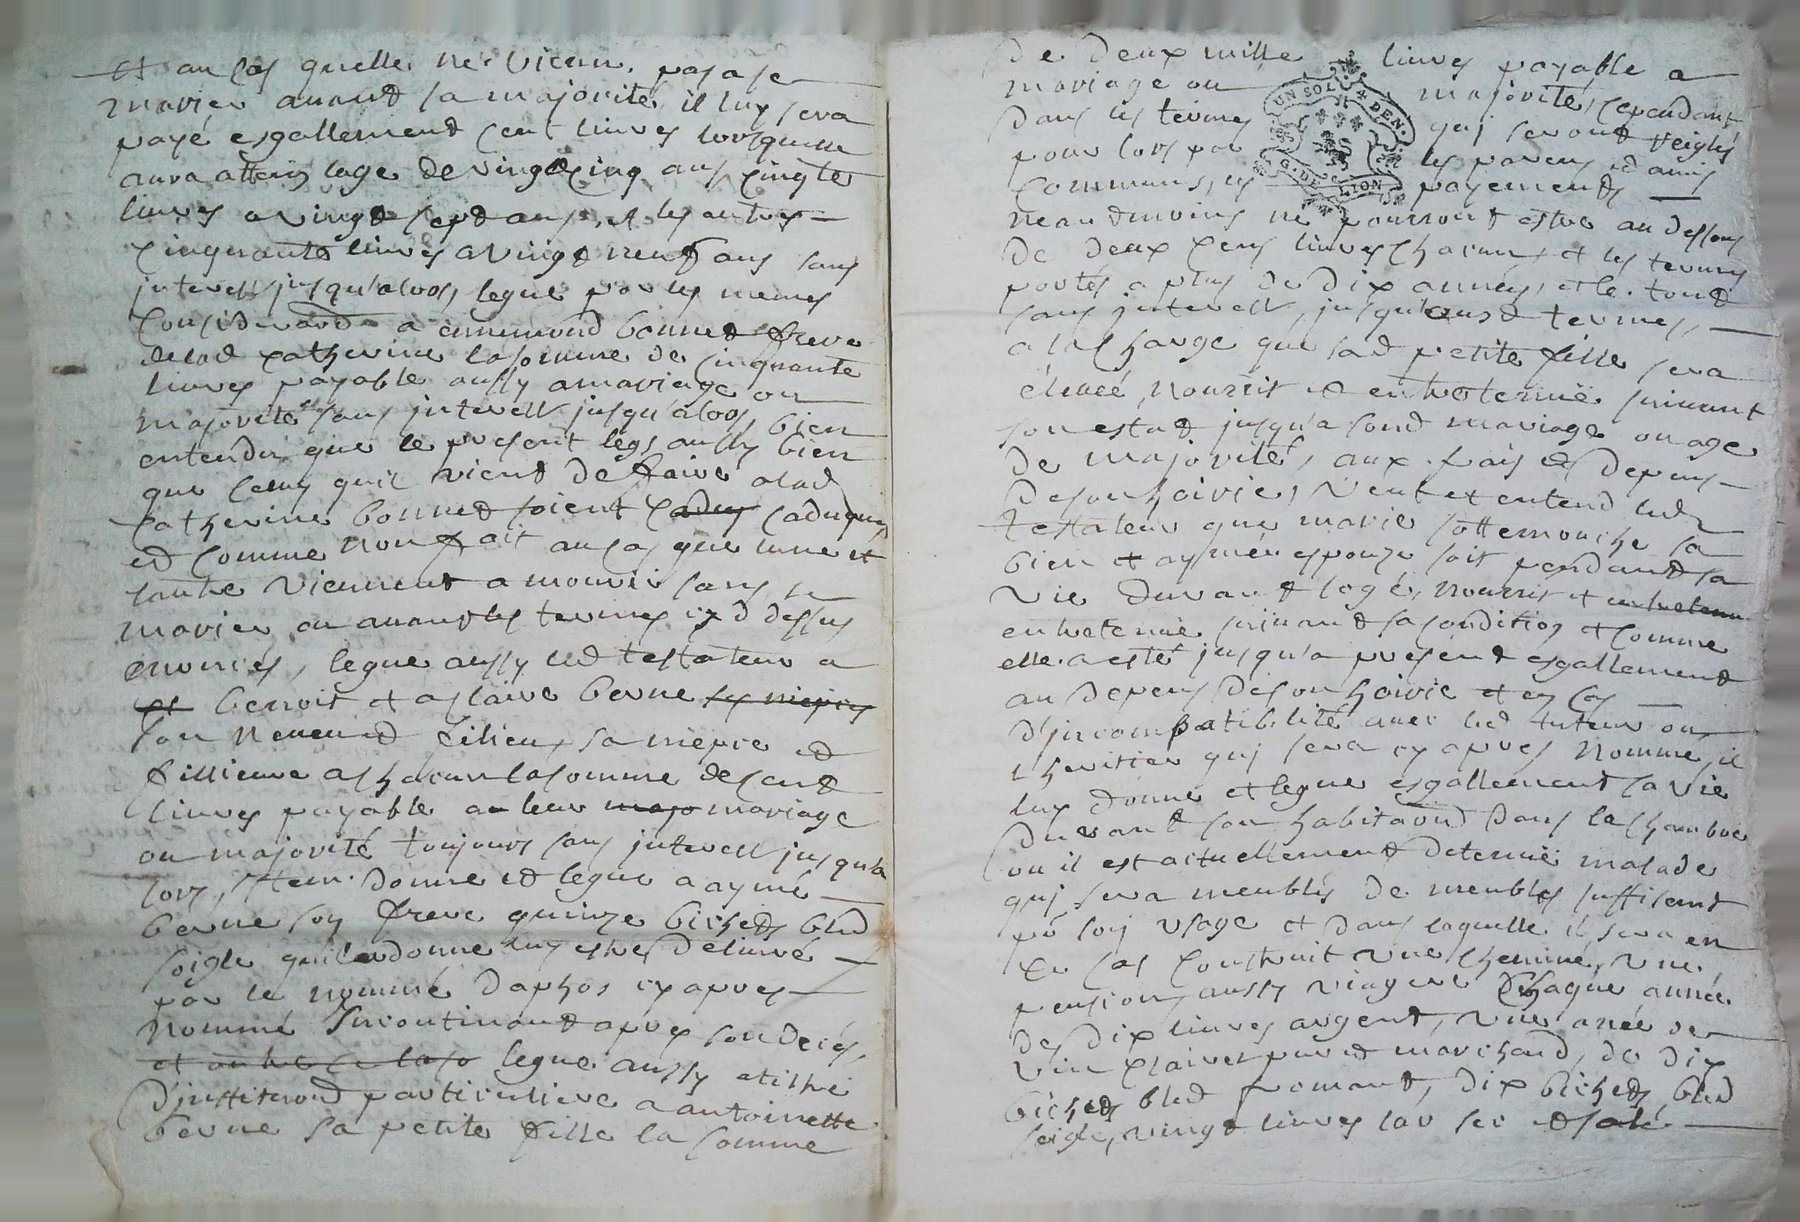 et au cas quelle ne vienne pas a se
marier avant sa majorité, il luy sera
payé esgallement cent livres lorsquelle
aura atteins lage de vingt cinq ans, cinqte
livres a vingt sept ans, et les autres
cinquante livres a vingt neuf ans sans
interest jusqu'alors, legue par les memes
considerаtions a ennemond bonnet frere
de lad catherine la somme de cinquante
livres payable aussy a mariage ou
majorité sans interest jusqu'alors, bien
entendu que le present legs aussy bien
que celuy quil vient de faire a lad
catherine bonnet soient caducs caduques
et comme non fait au cas que lune et
lautre viennent a mourir sans se
marier ou avant les termes cy d dessus
enoncés, legue aussy led testateur a
benoit et a claire berne ses nieces
son neveu et filieu, sa niepce et
fillieure a chacun la somme de cent
livres payable a leur majo mariage
ou majorité toujours sans interest jusqu'a
lors, Item donne et legue a aymé
berne son frere quinze bichets bled
soigle quil ordonne luy estre delivré
par le nommé Daphos cy apres
nommé incontinant apres son decés,
et outre ce laso legue aussy a titre
d'institution particuliere a antoinette
berne sa petite fille la somme
de deux mille livres payable a
mariage ou majorité, cependant
dans les termes qui seront reiglés
pour lors par les parens et amis
communs, les payements
neantmoins ne pourront estre au dessous
de deux cens livres chacun, et les termes
portés a plus de dix années, et le tout
sans interest, jusqu'ausd termes,
a la charge que sad petite fille sera
élevée, nourrit et entretenuë suivant
son estat jusqu'a sond mariage ou age
de majorité, aux frais et depens
de son hoirie, veut et entend led
testateur que marie sottemouche sa
bien et aymée espouze soit pendant sa
vie durant logé, nourris et entretenu
entretenuë suivant sa condition et comme
elle a esté jusqu'a present esgallement
au depens de son hoirie et en cas
d'incompatibilité avec led tuteur ou
lheritier qui sera cy apres nommé, il
luy donne et legue esgallement sa vie
durant son habitation dans la chambre
ou il est actuellement detenuë malade
qui sera meublés de meubles suffisent
pr son usage et dans laquelle il sera en
ce cas construit une cheminé, une
pension aussy viagere chaque année
de dix livres argent, une anée de
vin clairet pur et marchand, de dix
bichets bled fromant, dix bichets bled
seigle, vingt livres lar sec et salé
UN SOL 4 DEN.
G. DE LION